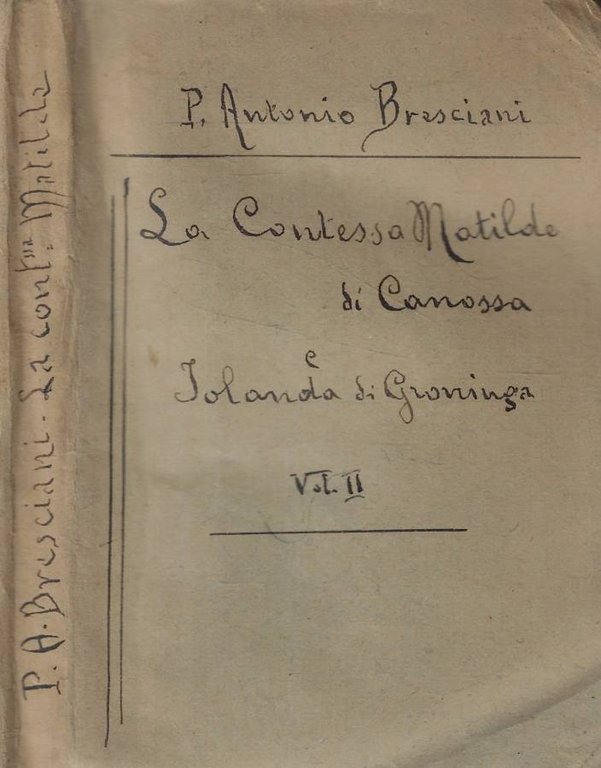 P. Antonio Bresciani
La Contessa Matilde
di Canossa
e
Iolanda di Groninga
Vol. II
P. A. Bresciani. La cont.ssa Matilde